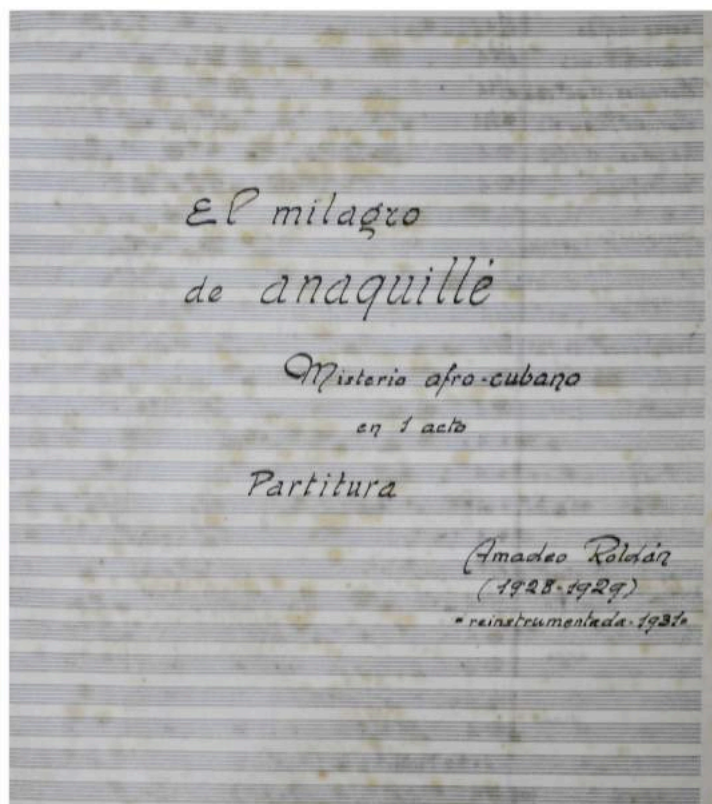 El milagro
de anaquillé
Misterio afro-cubano
en 1 acto
Partitura
Amadeo Roldán
(1928-1929)
"reinstrumentada-1931"